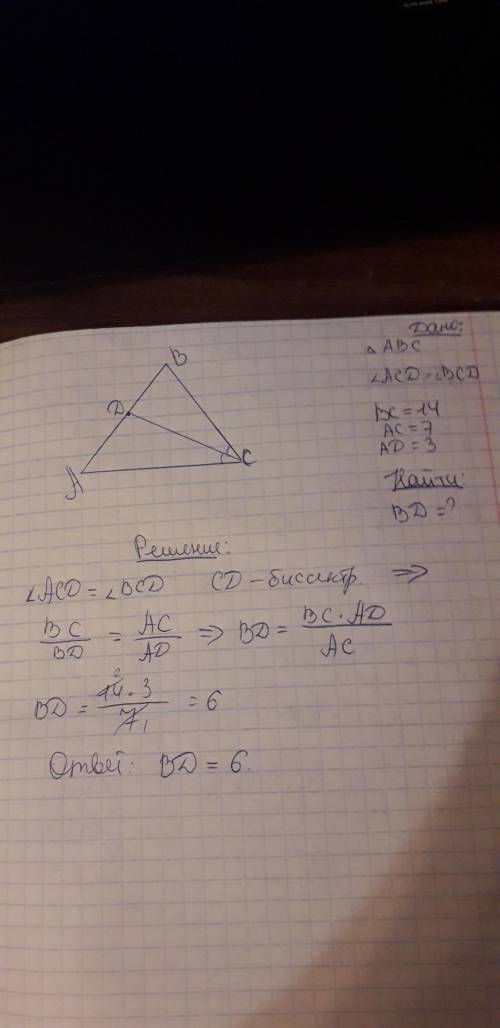 Дано:
△ABC
∠ACD = ∠BCD
BC = 14
AC = 7
AD = 3
Найти:
BD = ?
B
D
C
A
Решение:
∠ACD = ∠BCD CD – биссектр. ⇒
BC/BD = AC/AD ⇒ BD = BC·AD/AC
BD = 14·3/7 = 6
2
1
Ответ: BD = 6.